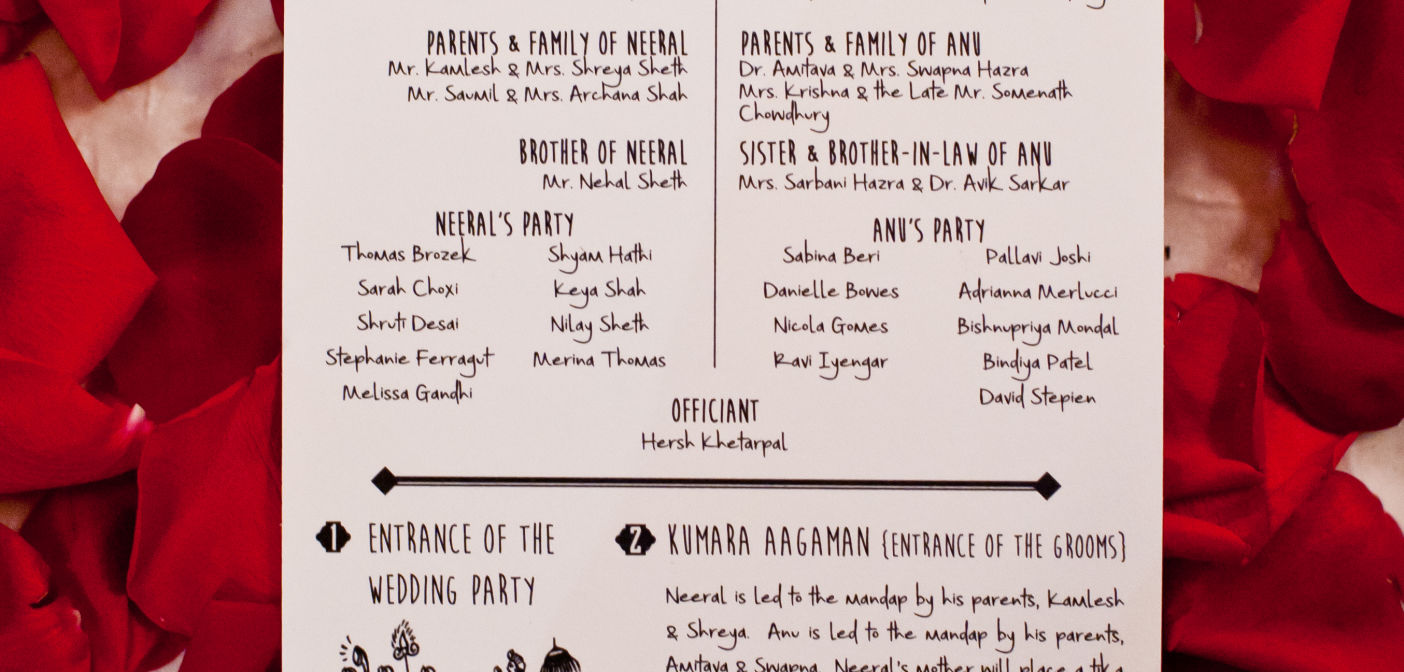 PARENTS & FAMILY OF NEERAL
Mr. Kamlesh & Mrs. Shreya Sheth
Mr. Saumil & Mrs. Archana Shah
BROTHER OF NEERAL
Mr. Nehal Sheth
NEERAL'S PARTY
Thomas Brozek
Sarah Choxi
Shruti Desai
Stephanie Ferragut
Melissa Gandhi
Shyam Hathi
Keya Shah
Nilay Sheth
Merina Thomas
PARENTS & FAMILY OF ANU
Dr. Amitava & Mrs. Swapna Hazra
Mrs. Krishna & the Late Mr. Somenath
Chowdhury
SISTER & BROTHER-IN-LAW OF ANU
Mrs. Sarbani Hazra & Dr. Avik Sarkar
ANU'S PARTY
Sabina Beri
Danielle Bowes
Nicola Gomes
Ravi Iyengar
Pallavi Joshi
Adrianna Merlucci
Bishnupriya Mondal
Bindiya Patel
David Stepien
OFFICIANT
Hersh Khetarpal
1 ENTRANCE OF THE
WEDDING PARTY
2 KUMARA AAGAMAN {ENTRANCE OF THE GROOMS}
Neeral is led to the mandap by his parents, Kamlesh
& Shreya. Anu is led to the mandap by his parents,
Amitava & Swapna. Neeral's mother will place a tika